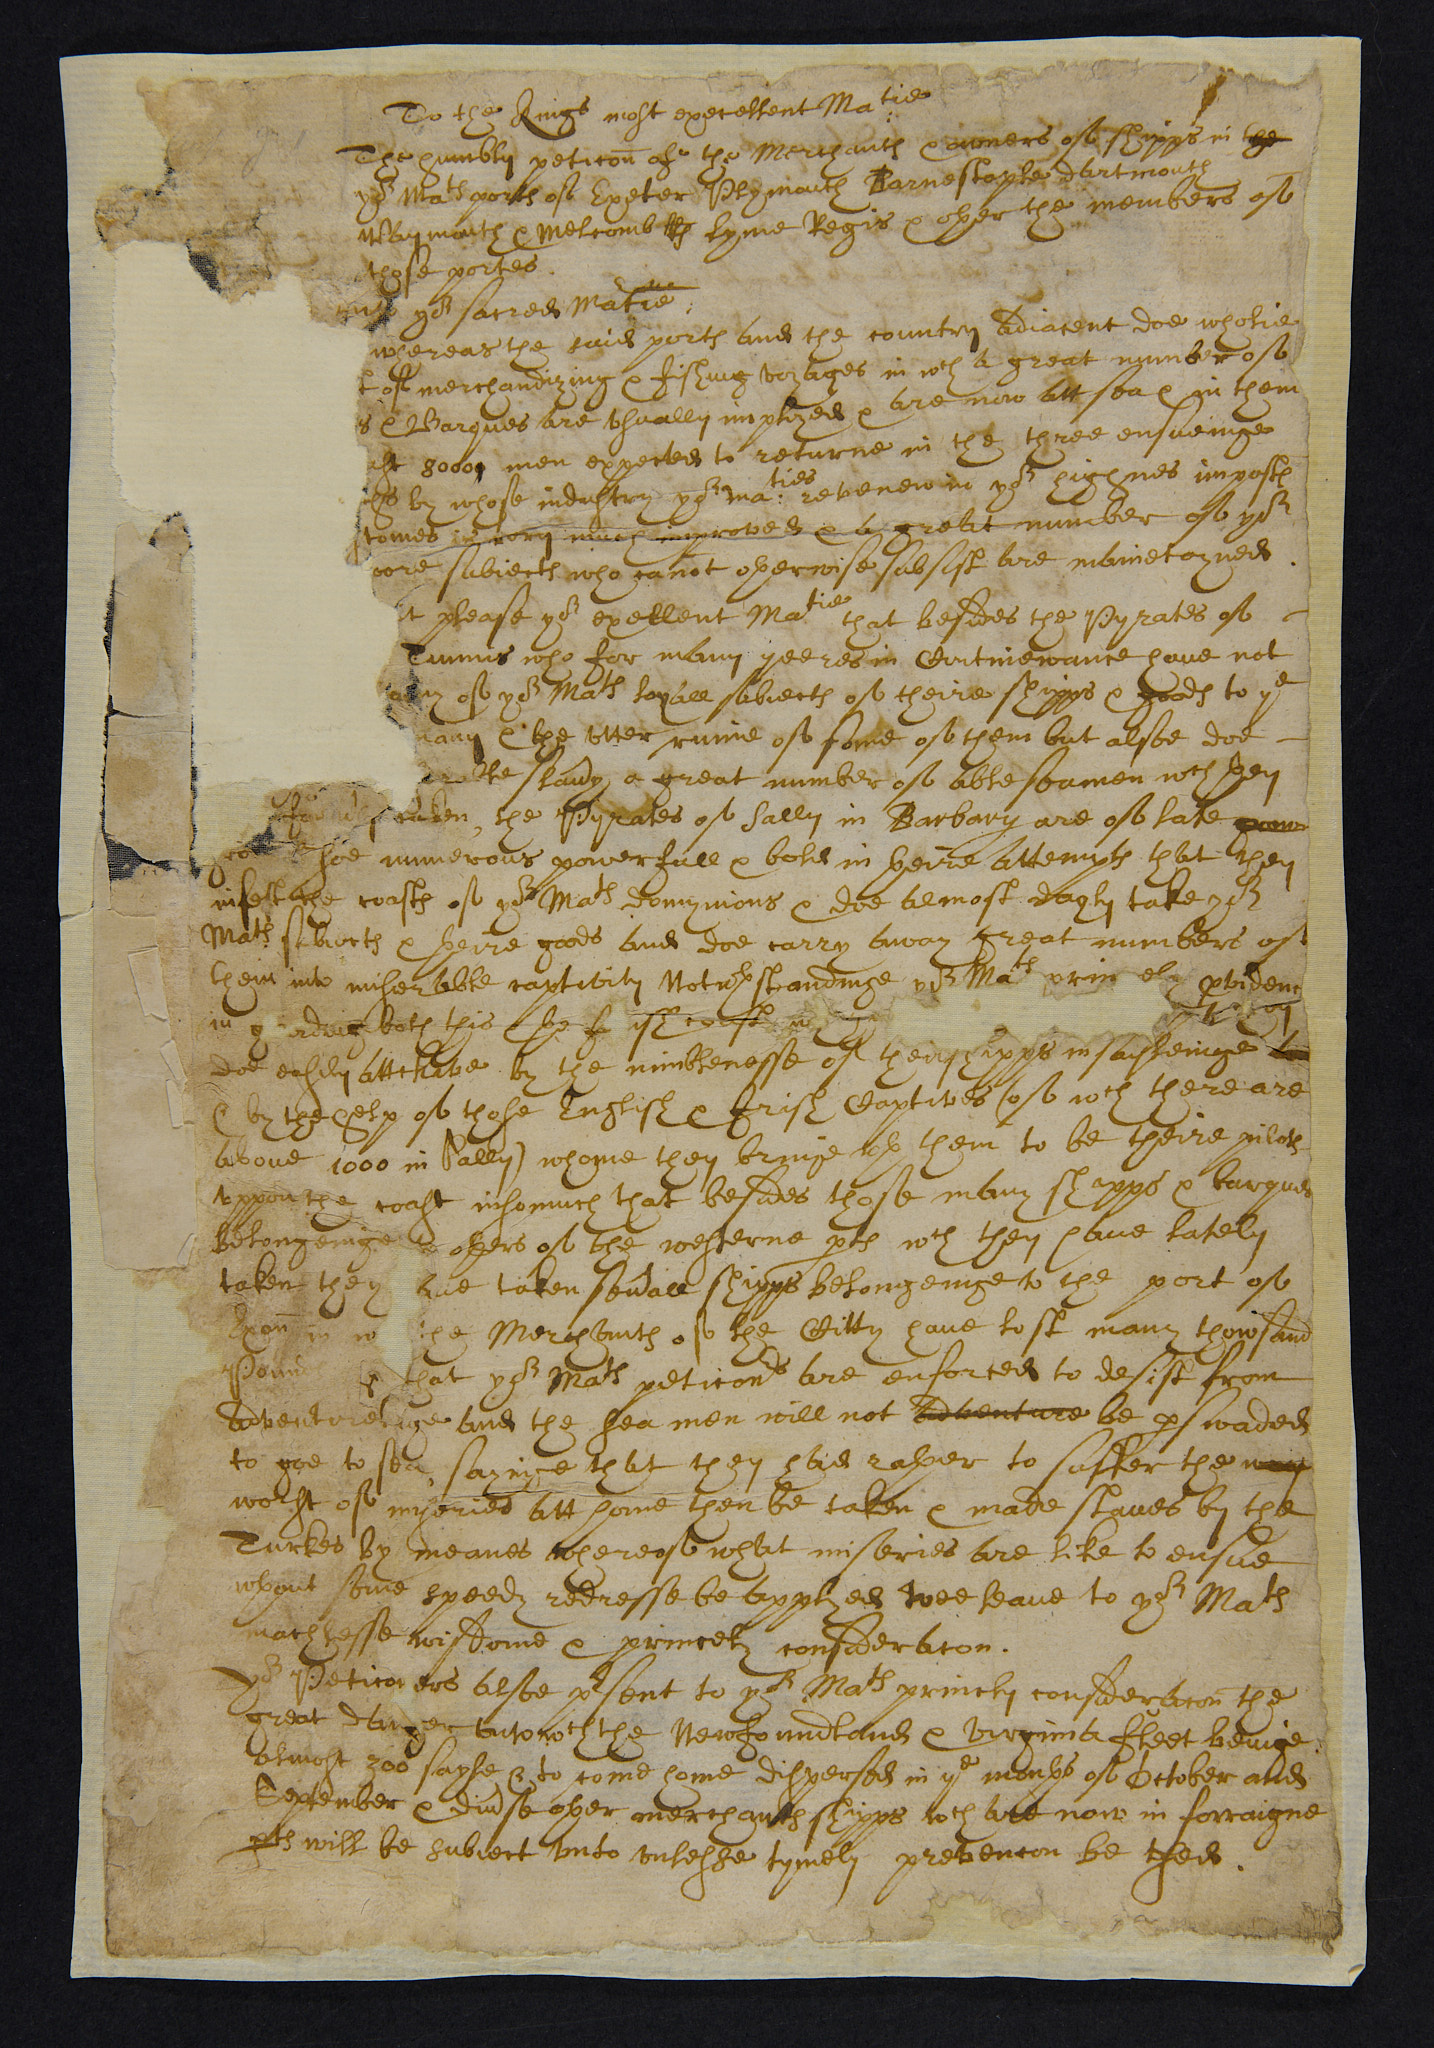 To the Kings most execellent Ma:tie
The humbly peticon of the Merchants & owners of shipps in the
yor Mats ports of Exeter Plymouth Barnestaple dartmouth
Waymouth & Melcomb Lyme Regis & other the members of
those portes.
yor sacred Matie:
whereas the said ports and the country adiacent doe wholie
of merchandizing & fishing voyages in wch a great number of
s & Barques are vsually imployed & are now att sea & in them
st 8000 men expected to returne in the three ensueinge
by whose industry yor ma:ties revenew in yor highnes imposts
tomes is very much improved & a great number of yor
oore subiects who canot otherwise subsist are mainetayned.
t please yor exellent Matie that besides the Pyrates of
Tunnis who for many yeeres in Contineuance have not
of yor Mats loyall subiects of theire shipps & goods to ye
many & the vtter ruine of some of them but alsoe doe
slavery a great number of able seamen wch they
taken, the Pyrates of Sally in Barbary are of late
soe numerous powerfull & bold in theire attempts that they
infest the coasts of yor Mats domynions & doe almost dayly take yor
Mats subiects & theire goods and doe carry away great numbers of
them into miserable captivity Notwthstandinge yor Mats prin ely pvidenc
in g rding both this coast
doe easily atteine by the nimblenesse of their shipps in saileinge
& by the help of those English & Irish Captives (of wch there are
above 1000 in Sally) whome they bringe wth them to be theire pilots
vppon the coast insomuch that besides those many shipps & barques
belongeinge to others of the westerne pts wch they have lately
taken they ave taken severall shipps belongeinge to the port of
Exon in w the Merchants of the Citty have lost many thowsand
Pound that yor Mats peticonrs are enforced to desist from
adventureinge and the sea men will not adventure be pswaded
to goe to sea, sayinge that they had rather to suffer the
worst of myseries att home then be taken & made slaves by the
Turkes by meanes whereof what miseries are like to ensue
wthout some speedy redresse be applyed wee leave to yor Mats
matchlesse wisdome & princely consideracon.
yor Peticoners alsoe psent to yor Mats princely consideracon the
great danger vnto wch the Newfoundland & virginia fleet beinge
almost 300 sayle & to come home dispersed in ye monthes of October and
September & divrse other merchants shipps wch are now in forraigne
pts will be subiect vnto vnlesse tymely prevencon be vsed.